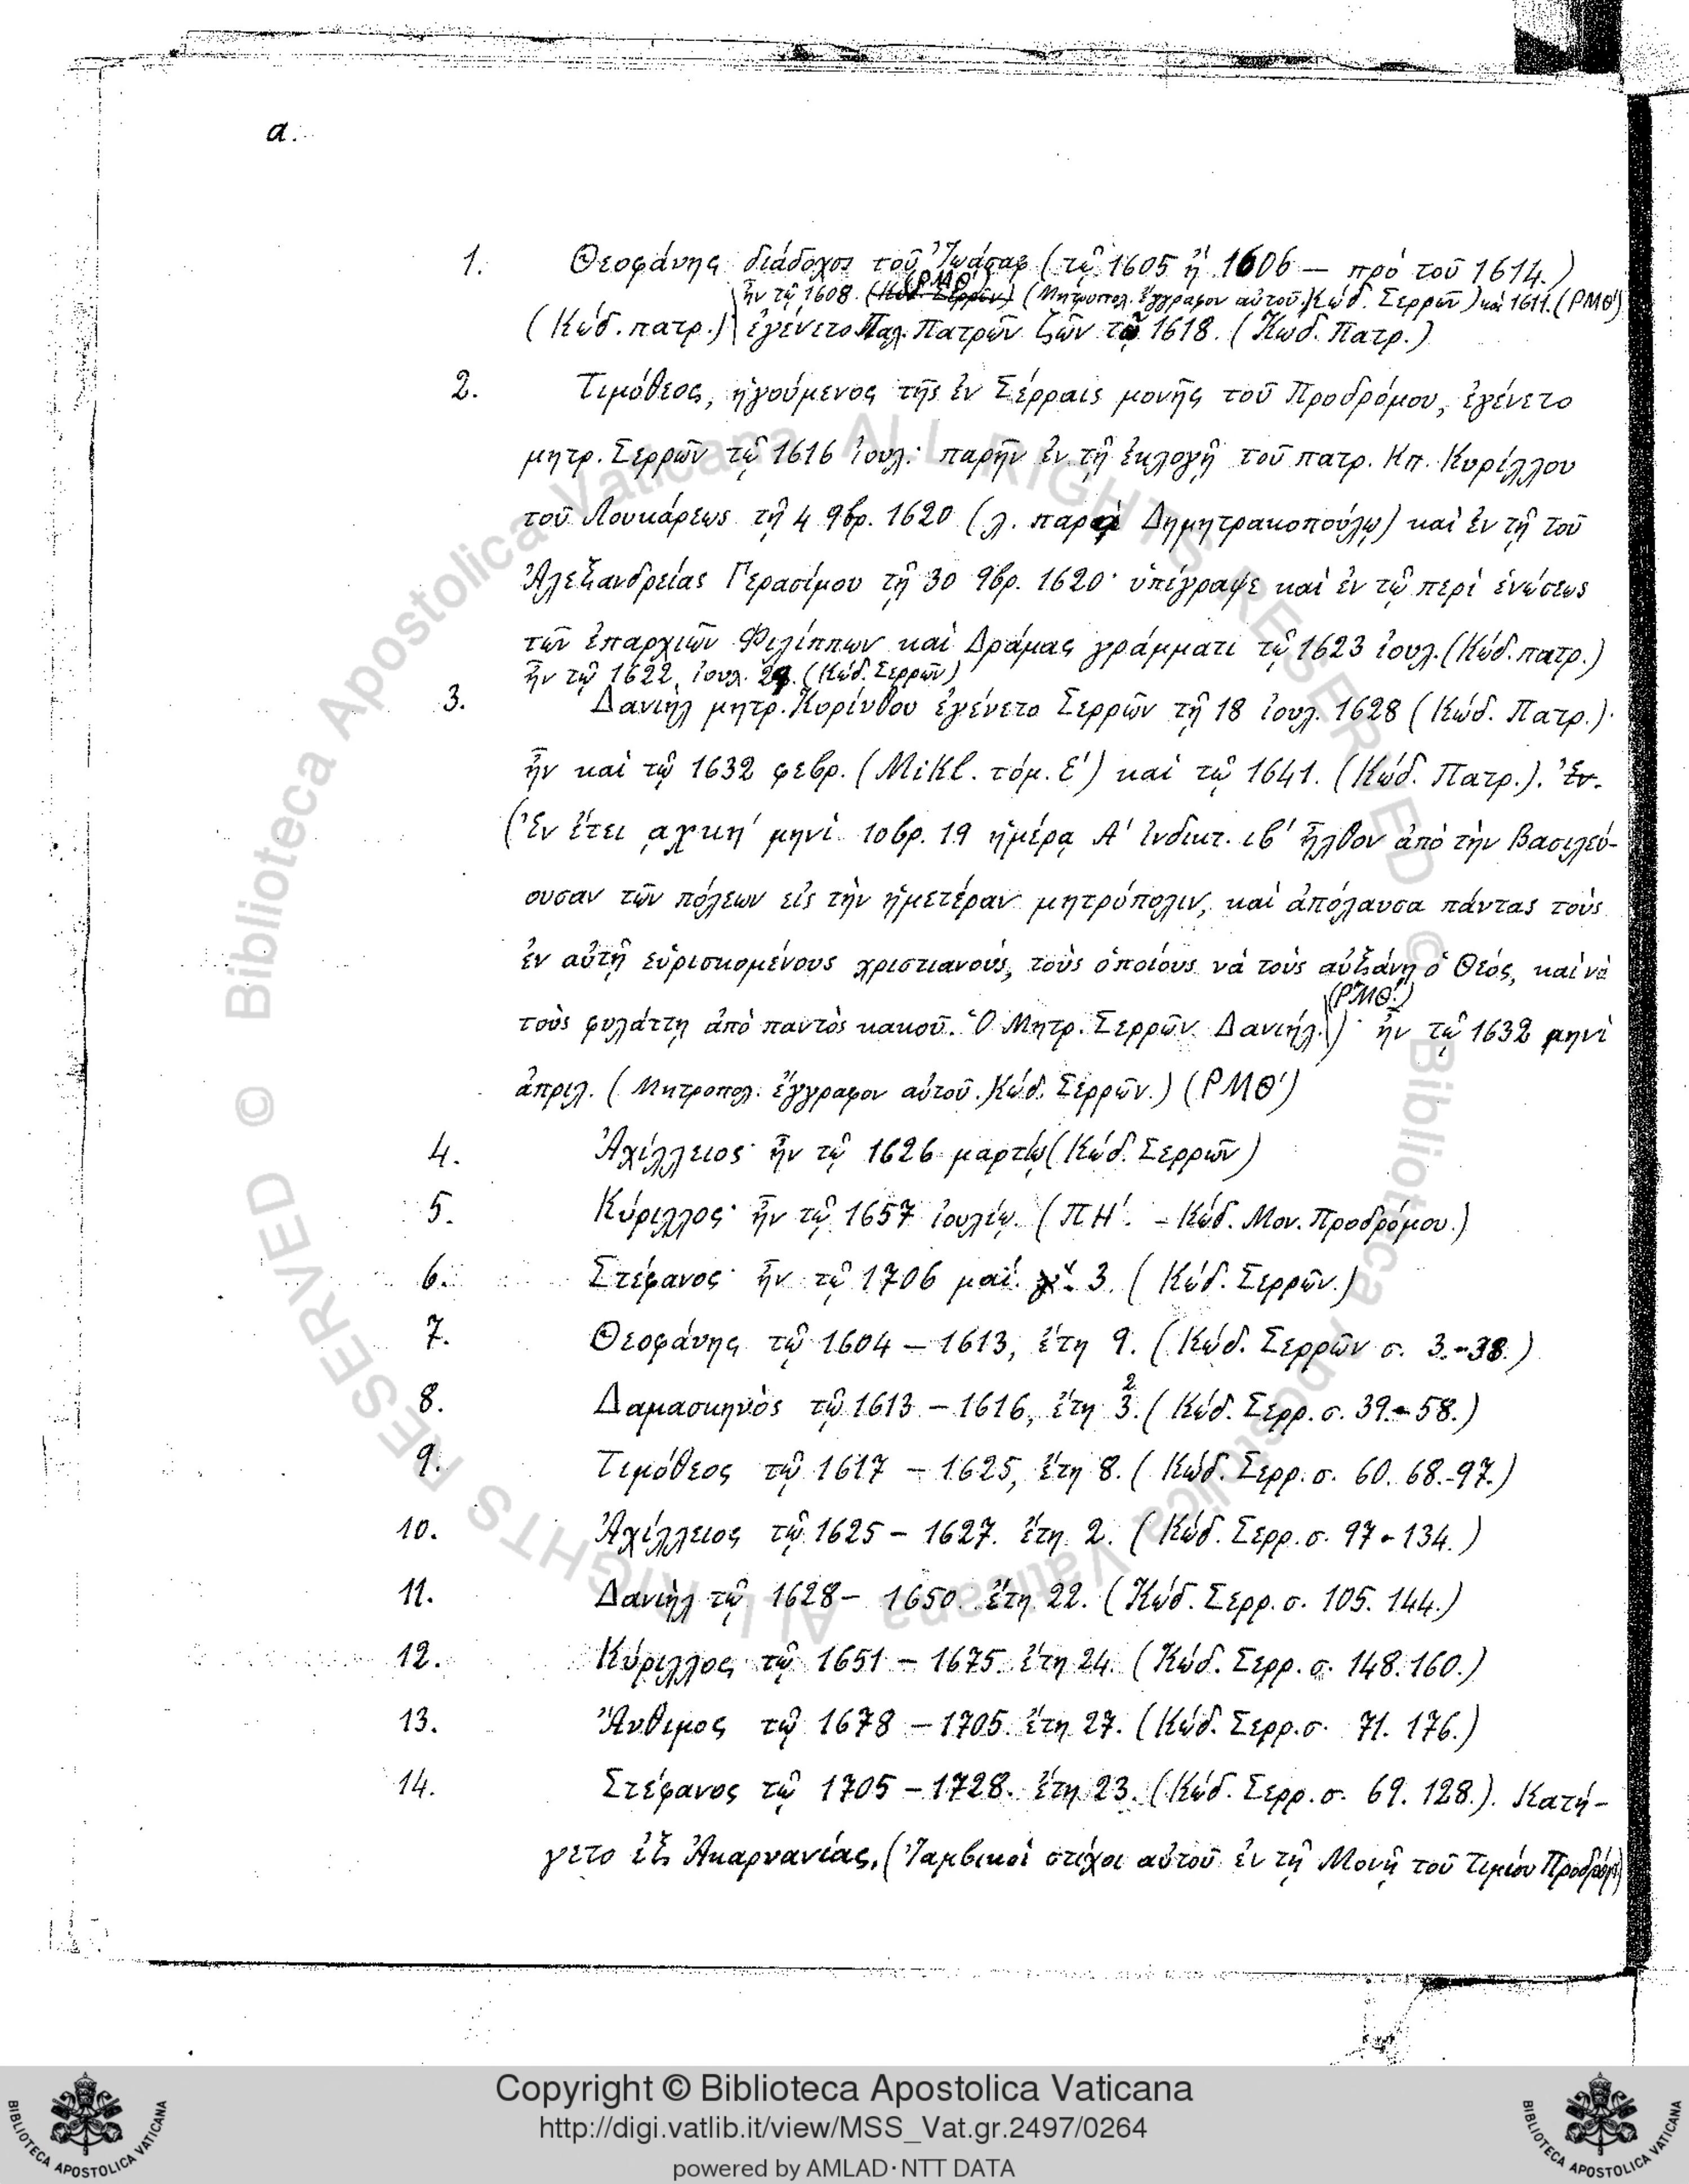 α.
1. Θεοφάνης διάδοχος τοῦ Ἰωάσαφ (τῷ 1605 ἢ 1606 — πρὸ τοῦ 1614.)
ἦν τῷ 1608. (Κώδ. Σερρῶν) (ΡΜΘ΄) (Μητροπολ. ἔγγραφον αὐτοῦ. Κώδ. Σερρῶν) καὶ 1611. (ΡΜΘ΄)
(Κώδ. πατρ.) ἐγένετο Παλ. Πατρῶν ζῶν τῷ 1618. (Κώδ. Πατρ.)
2. Τιμόθεος, ἡγούμενος τῆς ἐν Σέρραις μονῆς τοῦ Προδρόμου, ἐγένετο
μητρ. Σερρῶν τῷ 1616 ἰουλ· παρῆν ἐν τῇ ἐκλογῇ τοῦ πατρ. Κπ. Κυρίλλου
τοῦ Λουκάρεως τῇ 4 9βρ. 1620 (λ. παρὰ Δημητρακοπούλῳ) καὶ ἐν τῇ τοῦ
Ἀλεξανδρείας Γερασίμου τῇ 30 9βρ. 1620· ὑπέγραψε καὶ ἐν τῷ περὶ ἑνώσεως
τῶν ἐπαρχιῶν Φιλίππων καὶ Δράμας γράμματι τῷ 1623 ἰουλ. (Κώδ. πατρ.)
ἦν τῷ 1622, ἰουλ. (Κώδ. Σερρῶν)
3. Δανιὴλ μητρ. Κορίνθου ἐγένετο Σερρῶν τῇ 18 ἰουλ. 1628 (Κώδ. Πατρ.)·
ἦν καὶ τῷ 1632 φεβρ. (Mikl. τόμ. Ε΄) καὶ τῷ 1641. (Κώδ. Πατρ.). Ἐν.
(Ἐν ἔτει ͵αχκη΄ μηνὶ 10βρ. 19 ἡμέρᾳ Α΄ ἰνδικτ. ιβ΄ ἦλθον ἀπὸ τὴν Βασιλεύ-
ουσαν τῶν πόλεων εἰς τὴν ἡμετέραν μητρόπολιν, καὶ ἀπόλαυσα πάντας τοὺς
ἐν αὐτῇ εὑρισκομένους χριστιανούς, τοὺς ὁποίους νὰ τοὺς αὐξάνῃ ὁ Θεός, καὶ νὰ
τοὺς φυλάττῃ ἀπὸ παντὸς κακοῦ. Ὁ Μητρ. Σερρῶν Δανιήλ.) (ΡΜΘ΄.) ἦν τῷ 1632 μηνὶ
ἀπριλ. (Μητροπολ. ἔγγραφον αὐτοῦ. Κώδ. Σερρῶν.) (ΡΜΘ΄)
4. Ἀχίλλειος· ἦν τῷ 1626 μαρτίῳ (Κώδ. Σερρῶν)
5. Κύριλλος· ἦν τῷ 1657 ἰουλίῳ. (ΠΗ΄. – Κώδ. Μον. Προδρόμου.)
6. Στέφανος· ἦν τῷ 1706 μαΐ. 3. (Κώδ. Σερρῶν.)
7. Θεοφάνης τῷ 1604 – 1613, ἔτη 9. (Κώδ. Σερρῶν σ. 3.-38.)
8. Δαμασκηνὸς τῷ 1613 – 1616, ἔτη 3. 2 (Κώδ. Σερρ. σ. 39.-58.)
9. Τιμόθεος τῷ 1617 – 1625, ἔτη 8. (Κώδ. Σερρ. σ. 60. 68.-97.)
10. Ἀχίλλειος τῷ 1625 – 1627. ἔτη 2. (Κώδ. Σερρ. σ. 97-134.)
11. Δανιὴλ τῷ 1628 – 1650. ἔτη 22. (Κώδ. Σερρ. σ. 105. 144.)
12. Κύριλλος τῷ 1651 – 1675. ἔτη 24. (Κώδ. Σερρ. σ. 148. 160.)
13. Ἄνθιμος τῷ 1678 – 1705. ἔτη 27. (Κώδ. Σερρ. σ. 71. 176.)
14. Στέφανος τῷ 1705 – 1728. ἔτη 23. (Κώδ. Σερρ. σ. 69. 128.). Κατή-
γετο ἐξ Ἀκαρνανίας. (Ἰαμβικοὶ στίχοι αὐτοῦ ἐν τῇ Μονῇ τοῦ Τιμίου Προδρόμ)
© Biblioteca Apostolica Vaticana ALL RIGHTS RESERVED © Biblioteca Apostolica Vaticana ALL RIGHTS RESERVED
Copyright © Biblioteca Apostolica Vaticana
http://digi.vatlib.it/view/MSS_Vat.gr.2497/0264
powered by AMLAD·NTT DATA
BIBLIOTECA APOSTOLICA VATICANA
BIBLIOTECA APOSTOLICA VATICANA